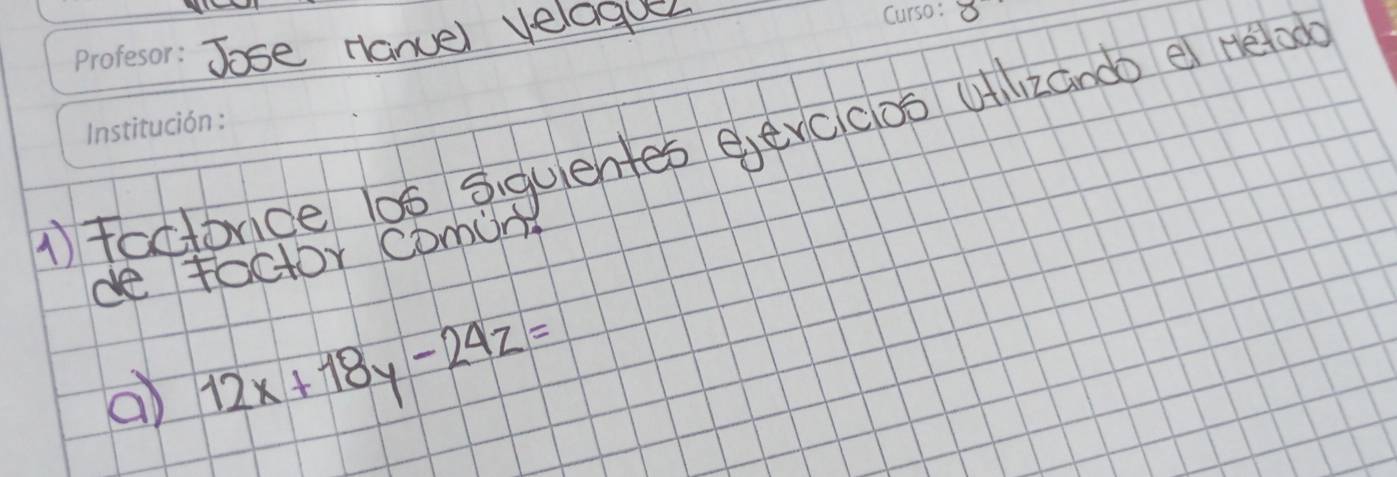 Profesor: Jose Manuel Velaquez
Curso: 8
Institución:
1) Factorice los siguientes ejercicios utilizando el Método
de factor común:
a) 12x + 18y - 24z =